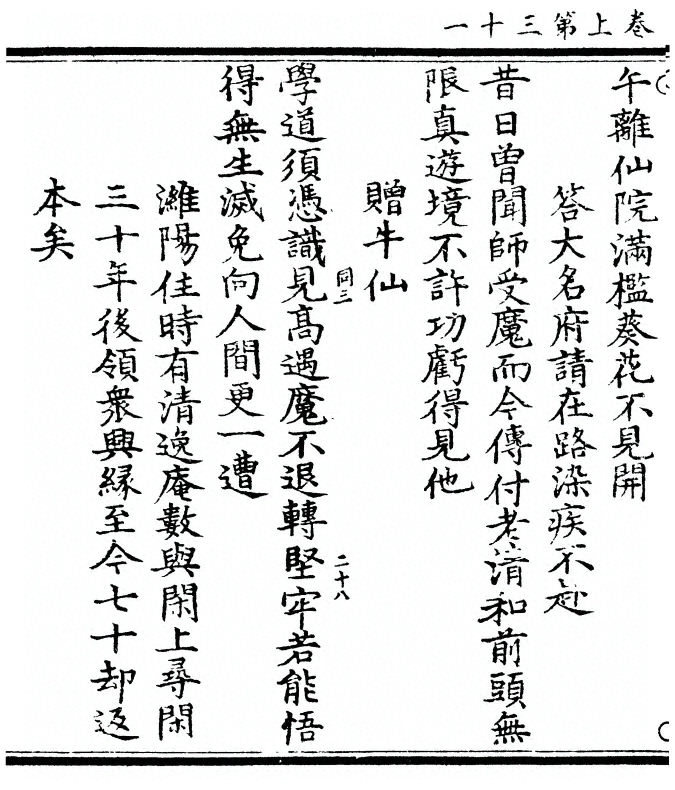 卷上第三十一
午離仙院滿檻葵花不見開
答大名府請在路染疾不赴
昔日曾聞師受魔而今傳付老清和前頭無
限真遊境不許功虧得見他
贈牛仙
同三
二十八
學道須憑識見高遇魔不退轉堅牢若能悟
得無生滅免向人間更一遭
濰陽住時有清逸庵數與閑上尋閑
三十年後領衆興緣至今七十却返
本矣